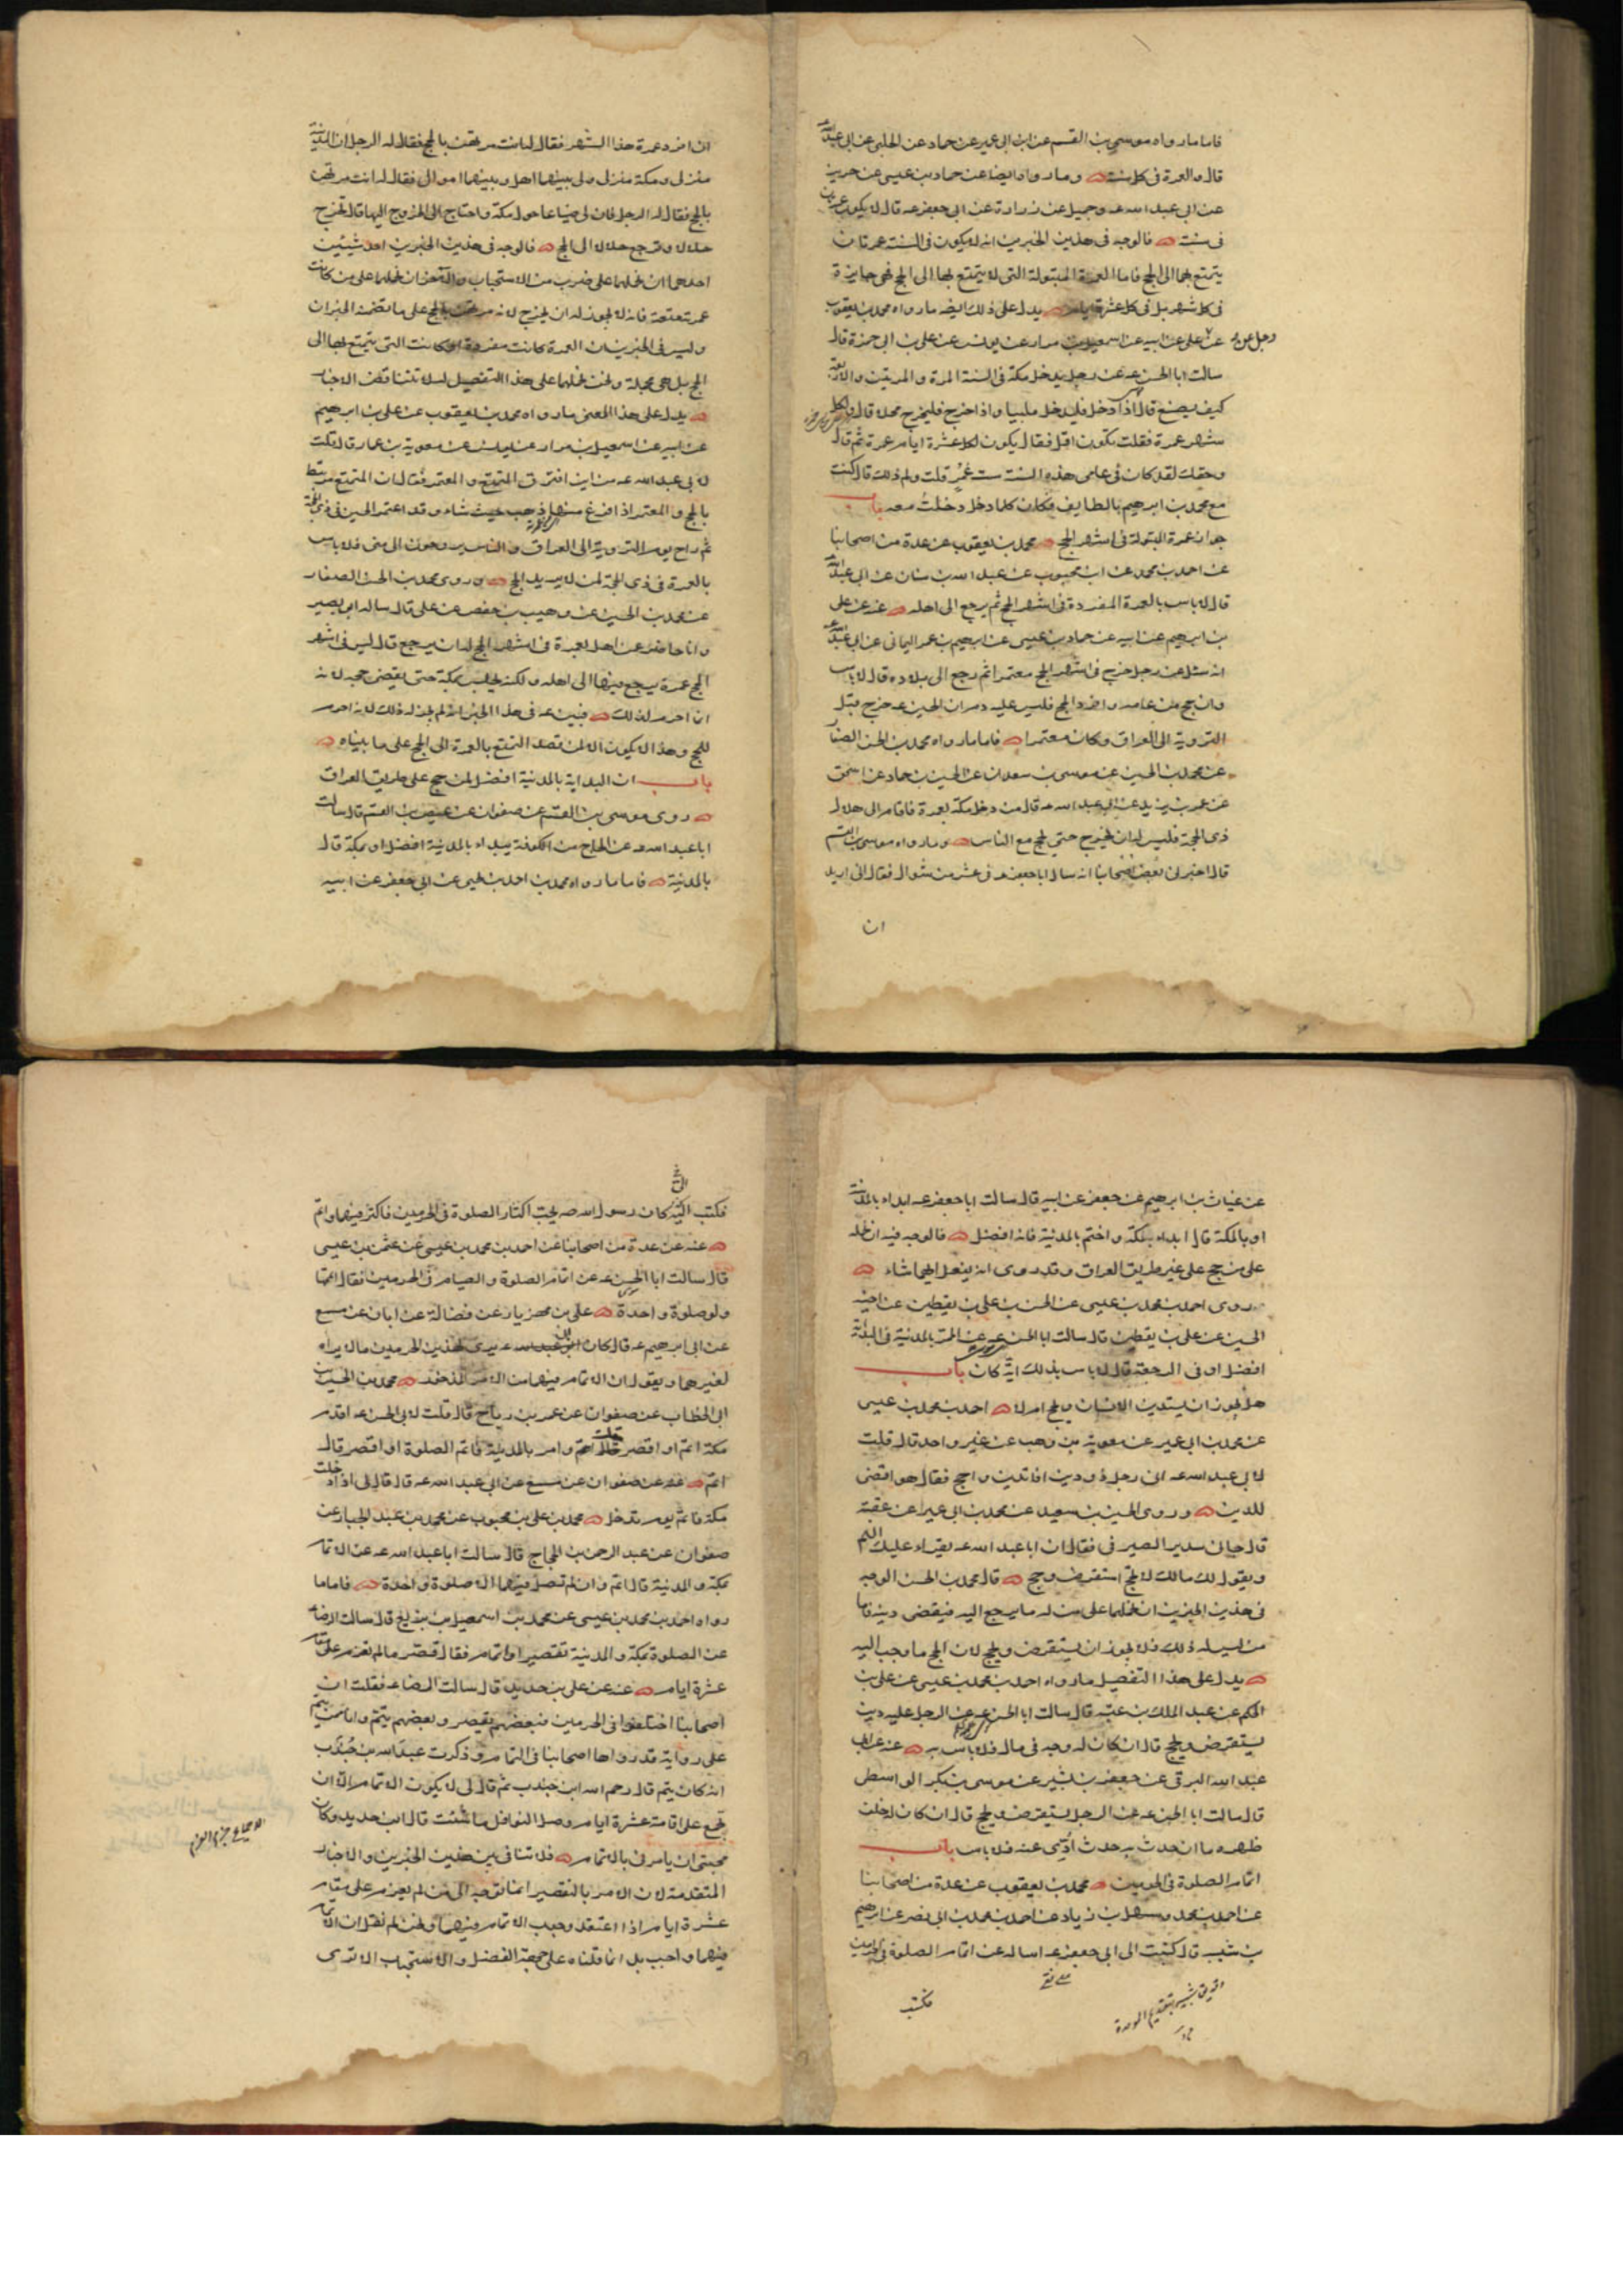 فاما ما رواه موسى بن القسم عن ابن ابى عمير عن حماد عن الحلبى عن ابى عبدالله ع
قال العمرة فى كل سنة وما رواه ايضا عن حماد بن عيسى عن حريز
عن ابى عبد الله ع وجميل عن زرارة عن ابى جعفر ع قال لا يكون عمرتان
فى سنة فالوجه فى هذين الخبرين انه لا يكون فى السنة عمرتان
يتمتع بهما الى الحج فاما العمرة المبتولة التى لا يتمتع بها الى الحج فهى جايزة
فى كل شهر بل فى كل عشرة ايام يدل على ذلك ايضا ما رواه محمد بن يعقوب
عن على عن ابيه عن اسمعيل بن مرار عن يونس عن على بن ابى حمزة قال
سالت ابا الحسن ع عن رجل يدخل مكة فى السنة المرة والمرتين والاربعة
كيف يصنع قال اذا دخل فليدخل ملبيا واذا خرج فليخرج محلا قال ولكل
شهر عمرة فقلت يكون اقل فقال يكون لكل عشرة ايام عمرة ثم قال
وحقك لقد كان فى عامى هذه السنة ست عمر قلت ولم ذلك قال كنت
مع محمد بن ابرهيم بالطايف فكان كلما دخل دخلت معه باب
جواز عمرة البتولة فى اشهر الحج محمد بن يعقوب عن عدة من اصحابنا
عن احمد بن محمد عن ابن محبوب عن عبد الله بن سنان عن ابى عبدالله ع
قال لا باس بالعمرة المفردة فى اشهر الحج ثم يرجع الى اهله عنه عن على
بن ابرهيم عن ابيه عن حماد بن عيسى عن ابرهيم بن عمر اليمانى عن ابى عبدالله ع
انه سئل عن رجل خرج فى اشهر الحج معتمرا ثم رجع الى بلاده قال لا باس
وان حج من عامه وافرد الحج فليس عليه دم ان الحسين ع خرج قبل
التروية الى العراق وكان معتمرا فاما ما رواه محمد بن الحسن الصفار
عن محمد بن الحسين عن موسى بن سعدان عن الحسين بن حماد عن اسحق
عن عمر بن يزيد عن ابى عبد الله ع قال من دخل مكة بعمرة فاقام الى هلال
ذى الحجة فليس له ان يخرج حتى يحج مع الناس وما رواه موسى بن القسم
قال اخبرنى بعض اصحابنا انه سال ابا جعفر ع فى عشر من شوال فقال انى اريد
ان
ان افرد عمرة هذا الشهر فقال له انت مرتهن بالحج فقال له الرجل ان المدينة
منزلى ومكة منزلى ولى بينهما اهل وبينهما اموال فقال له انت مرتهن
بالحج فقال له الرجل فان لى ضياعا حول مكة واحتاج الى الخروج اليها قال تخرج
حلالا وترجع حلالا الى الحج فالوجه فى هذين الخبرين احد شيئين
احدهما ان نحملهما على ضرب من الاستحباب والاخر ان نحملهما على من كانت
عمرته متعة فانه لا يجوز له ان يخرج لانه مرتهن بالحج على ما تضمنه الخبران
وليس فى الخبرين ان العمرة كانت مفردة او كانت التى يتمتع بها الى
الحج بل هى مجملة ونحن نحملهما على هذا التفصيل لئلا تتناقض الاخبار
يدل على هذا المعنى ما رواه محمد بن يعقوب عن على بن ابرهيم
عن ابيه عن اسمعيل بن مرار عن يونس عن معوية بن عمار قال قلت
لابى عبد الله ع من اين افترق المتمتع والمعتمر فقال ان المتمتع مرتبط
بالحج والمعتمر اذا فرغ منها ذهب حيث شاء وقد اعتمر الحسين فى ذى الحجة
ثم راح يوم التروية الى العراق والناس يروحون الى منى فلا باس
بالعمرة فى ذى الحجة لمن لا يريد الحج وروى محمد بن الحسن الصفار
عن محمد بن الحسين عن وهيب بن حفص عن على قال ساله ابو بصير
وانا حاضر عن اهل بعمرة فى اشهر الحج له ان يرجع قال ليس فى اشهر
الحج عمرة يرجع منها الى اهله ولكنه يحتبس بمكة حتى يقضى حجه لانه
انا احرم لذلك فبين ع فى هذا الخبر انه لم يجز له ذلك لانه احرم
للحج وهذا لا يكون الا لمن قصد التمتع بالعمرة الى الحج على ما بيناه
باب ان البداية بالمدينة افضل لمن حج على طريق العراق
روى موسى بن القسم عن صفوان عن عيص بن القسم قال سالت
ابا عبد الله ع عن الحاج من الكوفة يبداء بالمدينة افضل او بمكة قال
بالمدينة فاما ما رواه محمد بن احمد بن يحيى عن ابى جعفر عن ابيه
عن غياث بن ابرهيم عن جعفر عن ابيه قال سالت ابا جعفر ع ابداء بالمدينة
او بالمكة قال ابداء بمكة واختم بالمدينة فانه افضل فالوجه فيه ان نحمله
على من حج على غير طريق العراق وقد روى انه يفعل ايهما شاء
روى احمد بن محمد بن عيسى عن الحسن بن على بن يقطين عن اخيه
الحسين عن على بن يقطين قال سالت ابا الحسن ع عن الممر بالمدينة فى البداءة
افضل او فى الرجعة قال لا باس بذلك اية كان باب
هل يجوز ان يستدين الانسان ويحج ام لا احمد بن محمد بن عيسى
عن محمد بن ابى عمير عن معوية بن وهب عن غير واحد قال قلت
لابى عبد الله ع انى رجل ذو دين افاتدين واحج فقال هو اقضى
للدين وروى الحسين بن سعيد عن محمد بن ابى عمير عن عقبة
قال جانى سدير الصيرفى فقال ان ابا عبد الله ع يقراء عليك السلم
ويقول لك مالك لا تحج استقرض وحج قال محمد بن الحسن الوجه
فى هذين الخبرين ان نحملهما على من له ما يرجع اليه فيقضى دينه فاما
من ليس له ذلك فلا يجوز ان يستقرض ويحج لان الحج ما وجب اليه
يدل على هذا التفصيل ما رواه احمد بن محمد بن عيسى عن على بن
الحكم عن عبد الملك بن عتبة قال سالت ابا الحسن ع عن الرجل عليه دين
يستقرض ويحج قال ان كان له وجه فى مال فلا باس به عنه عن ابى
عبد الله البرقى عن جعفر بن بشير عن موسى بن بكر الواسطى
قال سالت ابا الحسن ع عن الرجل يستقرض ويحج قال ان كان خلف
ظهره ما ان حدث به حدث ادى عنه فلا باس باب
اتمام الصلوة فى الحرمين محمد بن يعقوب عن عدة من اصحابنا
عن احمد بن محمد وسهل بن زياد عن احمد بن محمد بن ابى نصر عن ابرهيم
بن شيبه قال كتبت الى ابى جعفر ع اساله عن اتمام الصلوة فى الحرمين
فكتب
فكتب الى كان رسول الله صه يحب اكثار الصلوة فى الحرمين فاكثر فيهما واتم
عنه عن عدة من اصحابنا عن احمد بن محمد بن عيسى عن عثمن بن عيسى
قال سالت ابا الحسن ع عن اتمام الصلوة والصيام فى الحرمين فقال اتمها
ولو صلوة واحدة على بن مهزيار عن فضالة عن ابان عن مسمع
عن ابى ابرهيم ع قال كان ابى يرى لهذين الحرمين ما لا يراه
لغيرهما ويقول ان الاتمام فيهما من الامر المذخور محمد بن الحسين بن
ابى الخطاب عن صفوان عن عمر بن رياح قال قلت لابى الحسن ع اقدم
مكة اتم او اقصر قال اتم قلت وامر بالمدينة فاتم الصلوة او اقصر قال
اتم عنه عن صفوان عن مسمع عن ابى عبد الله ع قال قال لى اذا دخلت
مكة فاتم يوم تدخل محمد بن على بن محبوب عن محمد بن عبد الجبار عن
صفوان عن عبد الرحمن بن الحجاج قال سالت ابا عبد الله ع عن الاتمام
بمكة والمدينة قال اتم وان لم تصل فيهما الا صلوة واحدة فاما ما
رواه احمد بن محمد بن عيسى عن محمد بن اسمعيل بن بزيع قال سالت الرضا ع
عن الصلوة بمكة والمدينة تقصير او اتمام فقال قصر ما لم تعزم على مقام
عشرة ايام عنه عن على بن حديد قال سالت الرضا ع فقلت ان
اصحابنا اختلفوا فى الحرمين فبعضهم يقصر وبعضهم يتم وانا ممن يتم
على رواية قد رواها اصحابنا فى التمام وذكرت عبد الله بن جندب
انه كان يتم قال رحم الله ابن جندب ثم قال لى لا يكون الاتمام الا ان
تجمع على اقامة عشرة ايام وصل النوافل ما شئت قال ابن حديد وكان
محبتى ان يامرنى بالاتمام فلا تنافى بين هذين الخبرين والاخبار
المتقدمة لان الامر بالتقصير انما توجه الى من لم يعزم على مقام
عشرة ايام اذا اعتقد وجوب الاتمام فيهما ونحن لم نقل ان الاتمام
فيهما واجب بل انما قلناه على جهة الفضل والاستحباب الا ترى